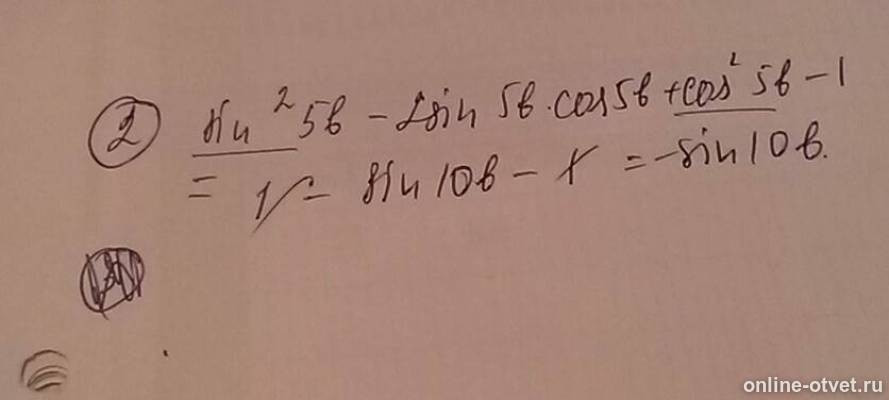 ② sin² 5b - 2sin 5b · cos 5b + cos² 5b - 1
= 1 - sin 10b - 1 = -sin 10b.
online-otvet.ru